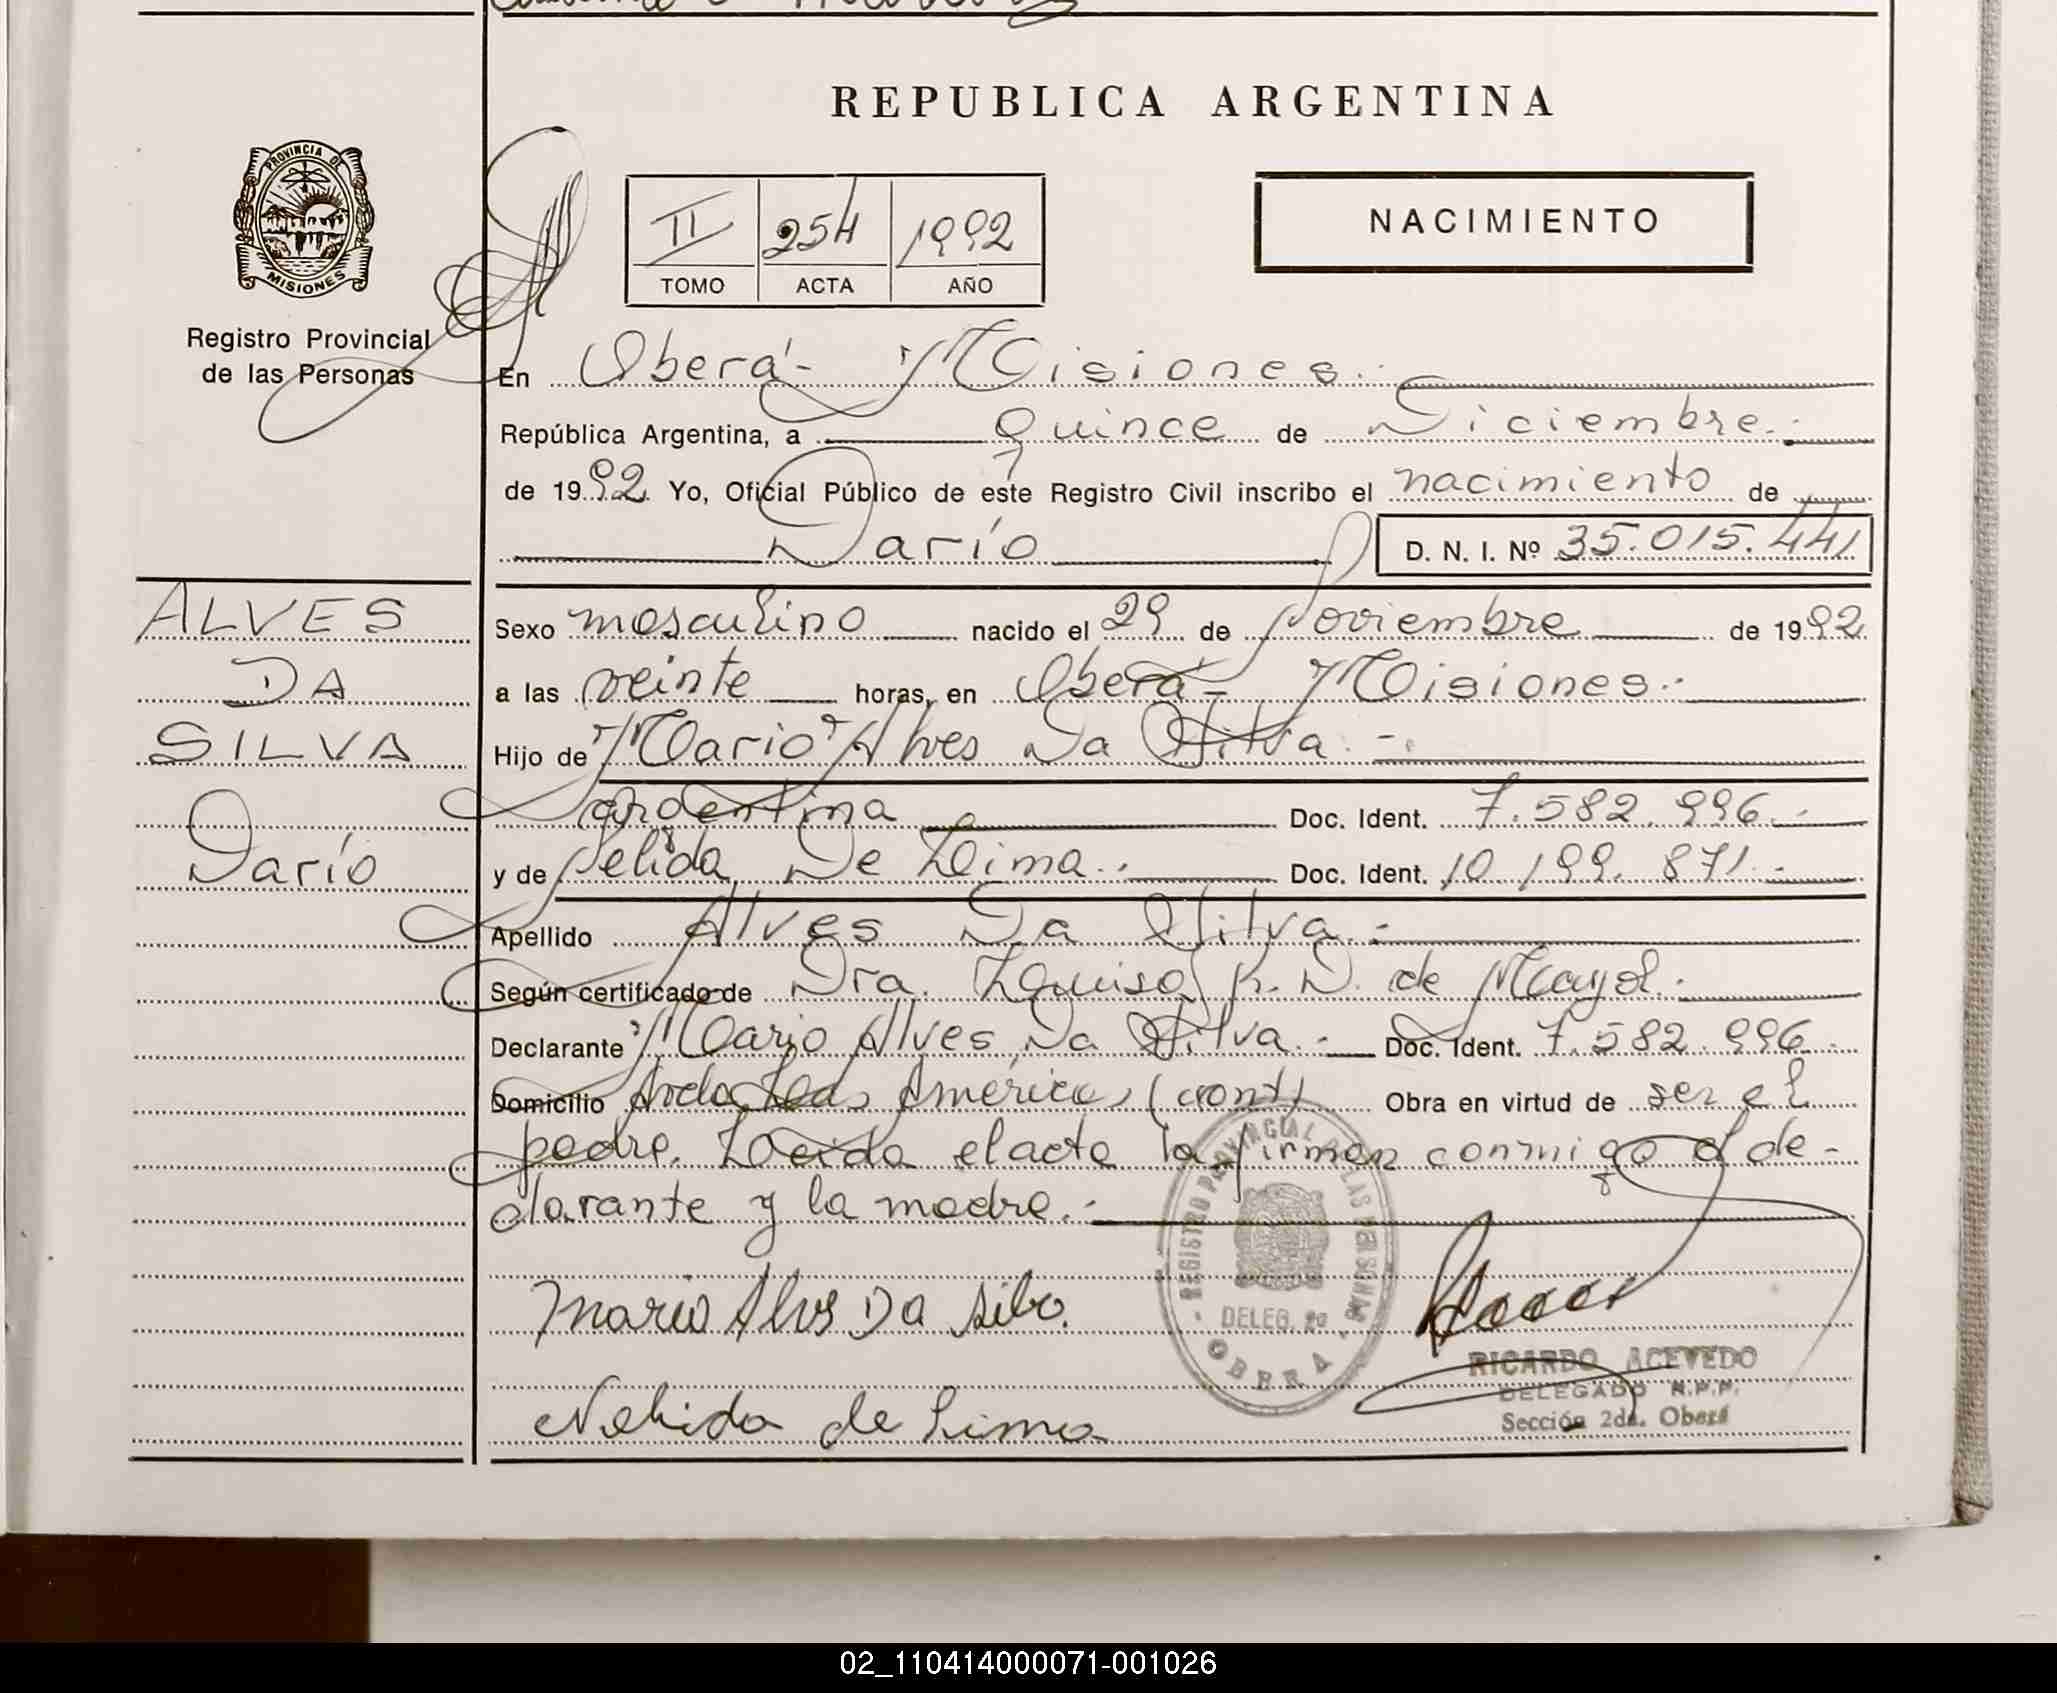 REPUBLICA ARGENTINA
PROVINCIA DE
MISIONES
Registro Provincial
de las Personas
II 254 1992
TOMO ACTA AÑO
NACIMIENTO
En Oberá- Misiones.-
República Argentina, a quince de Diciembre.-
de 1992. Yo, Oficial Público de este Registro Civil inscribo el nacimiento de
Darío D. N. I. Nº 35.015.441
ALVES
DA
SILVA
Darío
Sexo masculino nacido el 29 de Noviembre de 1992
a las veinte horas, en Oberá- Misiones.-
Hijo de Mario Alves Da Silva.-
argentina Doc. Ident. 7.582.996.-
y de Nelida De Lima.- Doc. Ident. 10.199.871.-
Apellido Alves Da Silva.-
Según certificado de Dra. Louisa R. D. de Mayol.-
Declarante Mario Alves Da Silva.- Doc. Ident. 7.582.996.
Domicilio Avda. Las Américas (cont) Obra en virtud de ser el
padre. Leida el acta la firman conmigo el de-
clarante y la madre.-
Mario Alves Da Silva.
Nelida de Lima
REGISTRO PROVINCIAL DE LAS PERSONAS
DELEG. 2a
OBERA
RICARDO ACEVEDO
DELEGADO R.P.P.
Sección 2da. Oberá
02_110414000071-001026